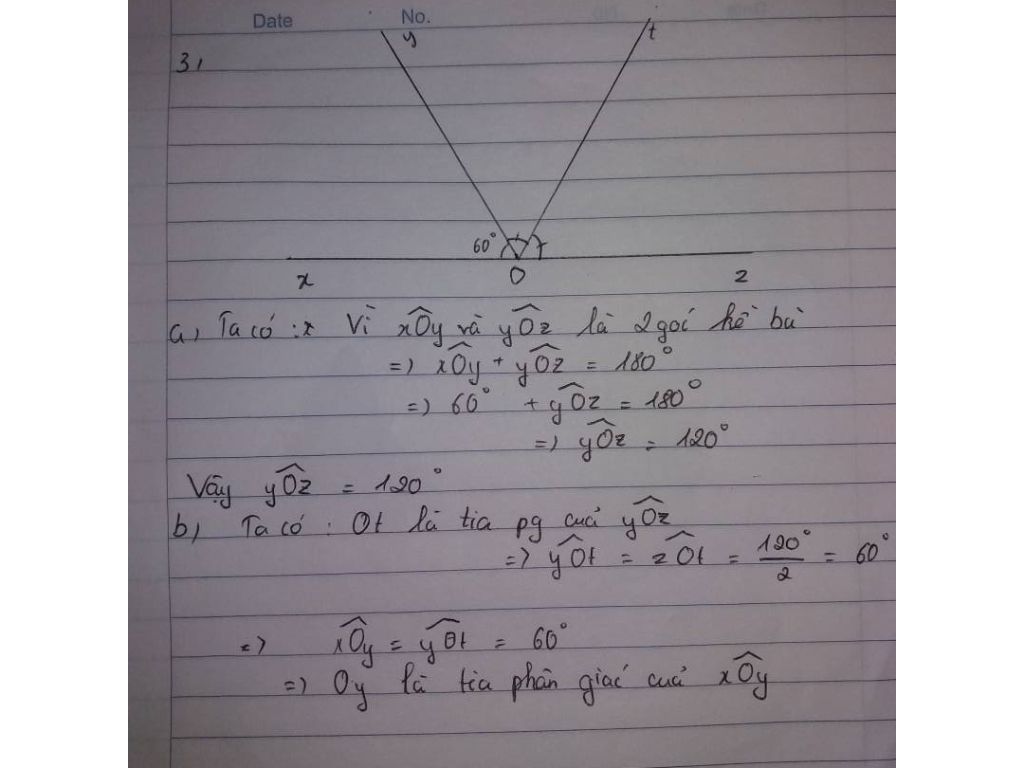 Date No.
3,
y t
60°
x O z
a, Ta có : * Vì xÔy và yÔz là 2 goí kề bù
=) xÔy + yÔz = 180°
=) 60° + yÔz = 180°
=) yÔz = 120°
Vậy yÔz = 120°
b, Ta có : Ot là tia pg cuả yÔz
=) yÔt = zÔt = 120°/2 = 60°
=) xÔy = yÔt = 60°
=) Oy là tia phân giác cuả xÔy